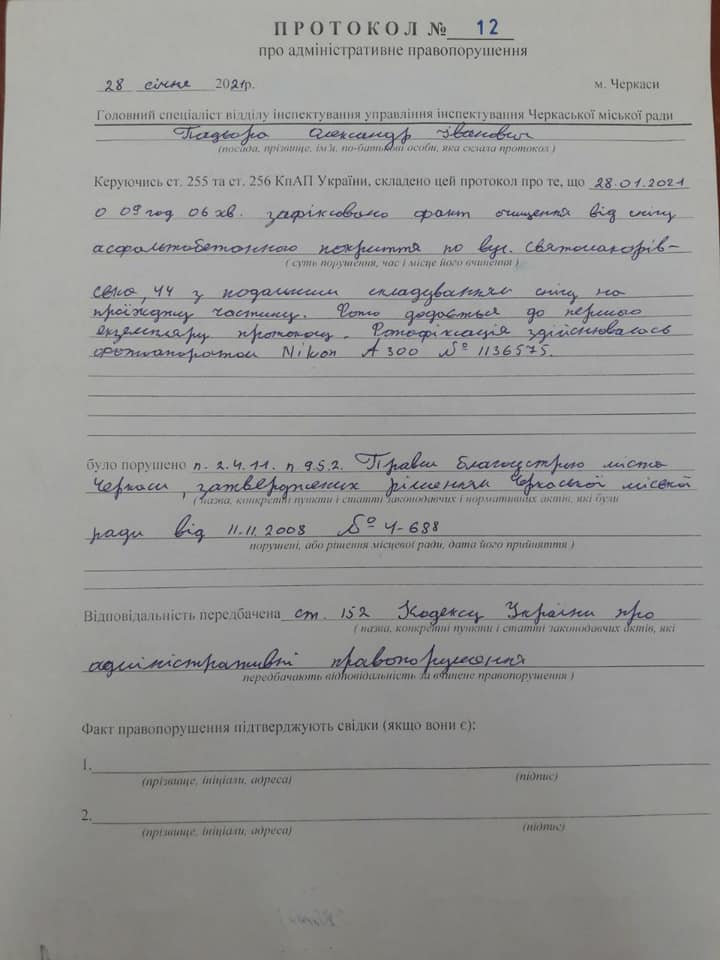 ПРОТОКОЛ № 12
про адміністративне правопорушення
28 січня 2021р. м. Черкаси
Головний спеціаліст відділу інспектування управління інспектування Черкаської міської ради
Олександр Іванович
(посада, прізвище, ім'я, по-батькові особи, яка склала протокол)
Керуючись ст. 255 та ст. 256 КпАП України, складено цей протокол про те, що 28.01.2021
о 09 год 06 хв. зафіксовано факт очищення від снігу
асфальтобетонного покриття по вул. Святомакарів-
( суть порушення, час і місце його вчинення )
ська, 44 з подальшим складуванням снігу на
проїжджу частину. Фото додається до першого
екземпляру протоколу. Фотофіксація здійснювалась
фотоапаратом Nikon A300 № 1136575.
було порушено п. 2.4.11. п 9.5.2. Правил благоустрою міста
Черкаси, затверджених рішенням Черкаської міської
( назва, конкретні пункти і статті законодавчих і нормативних актів, які були
ради від 11.11.2008 № 4-688
порушені, або рішення місцевої ради, дата його прийняття )
Відповідальність передбачена ст. 152 Кодексу України про
( назва, конкретні пункти і статті законодавчих актів, які
адміністративні правопорушення
передбачають відповідальність за вчинене правопорушення )
Факт правопорушення підтверджують свідки (якщо вони є):
1.
(прізвище, ініціали, адреса) (підпис)
2.
(прізвище, ініціали, адреса) (підпис)